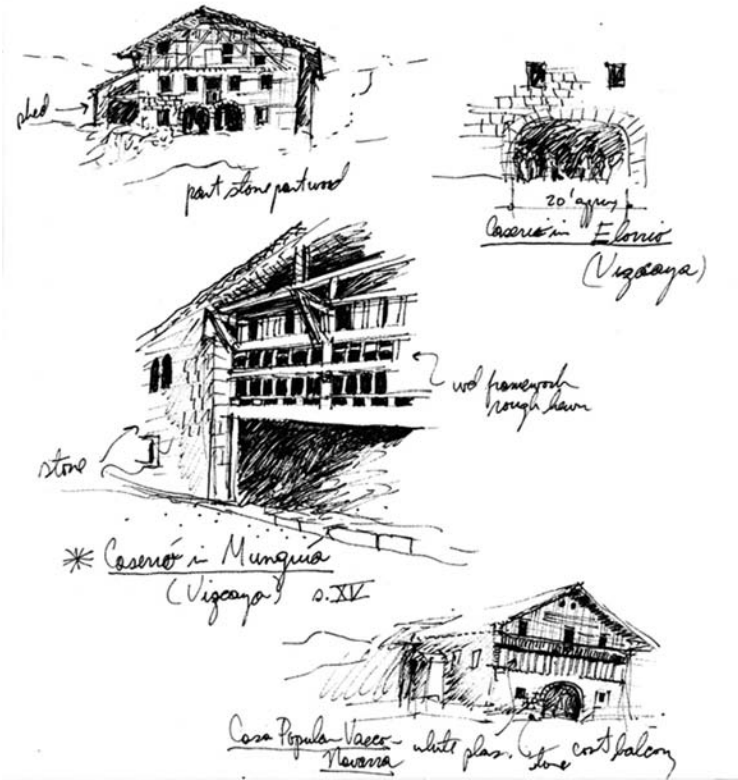 shed
part stone part wood
20' aprox
Caserio in Elorrio
(Vizcaya)
wd framework
rough hewn
stone
* Caserio in Munguia
(Vizcaya) s. XV
Casa Popular Vasco-
Navarra
white plas.
stone
cont balcony